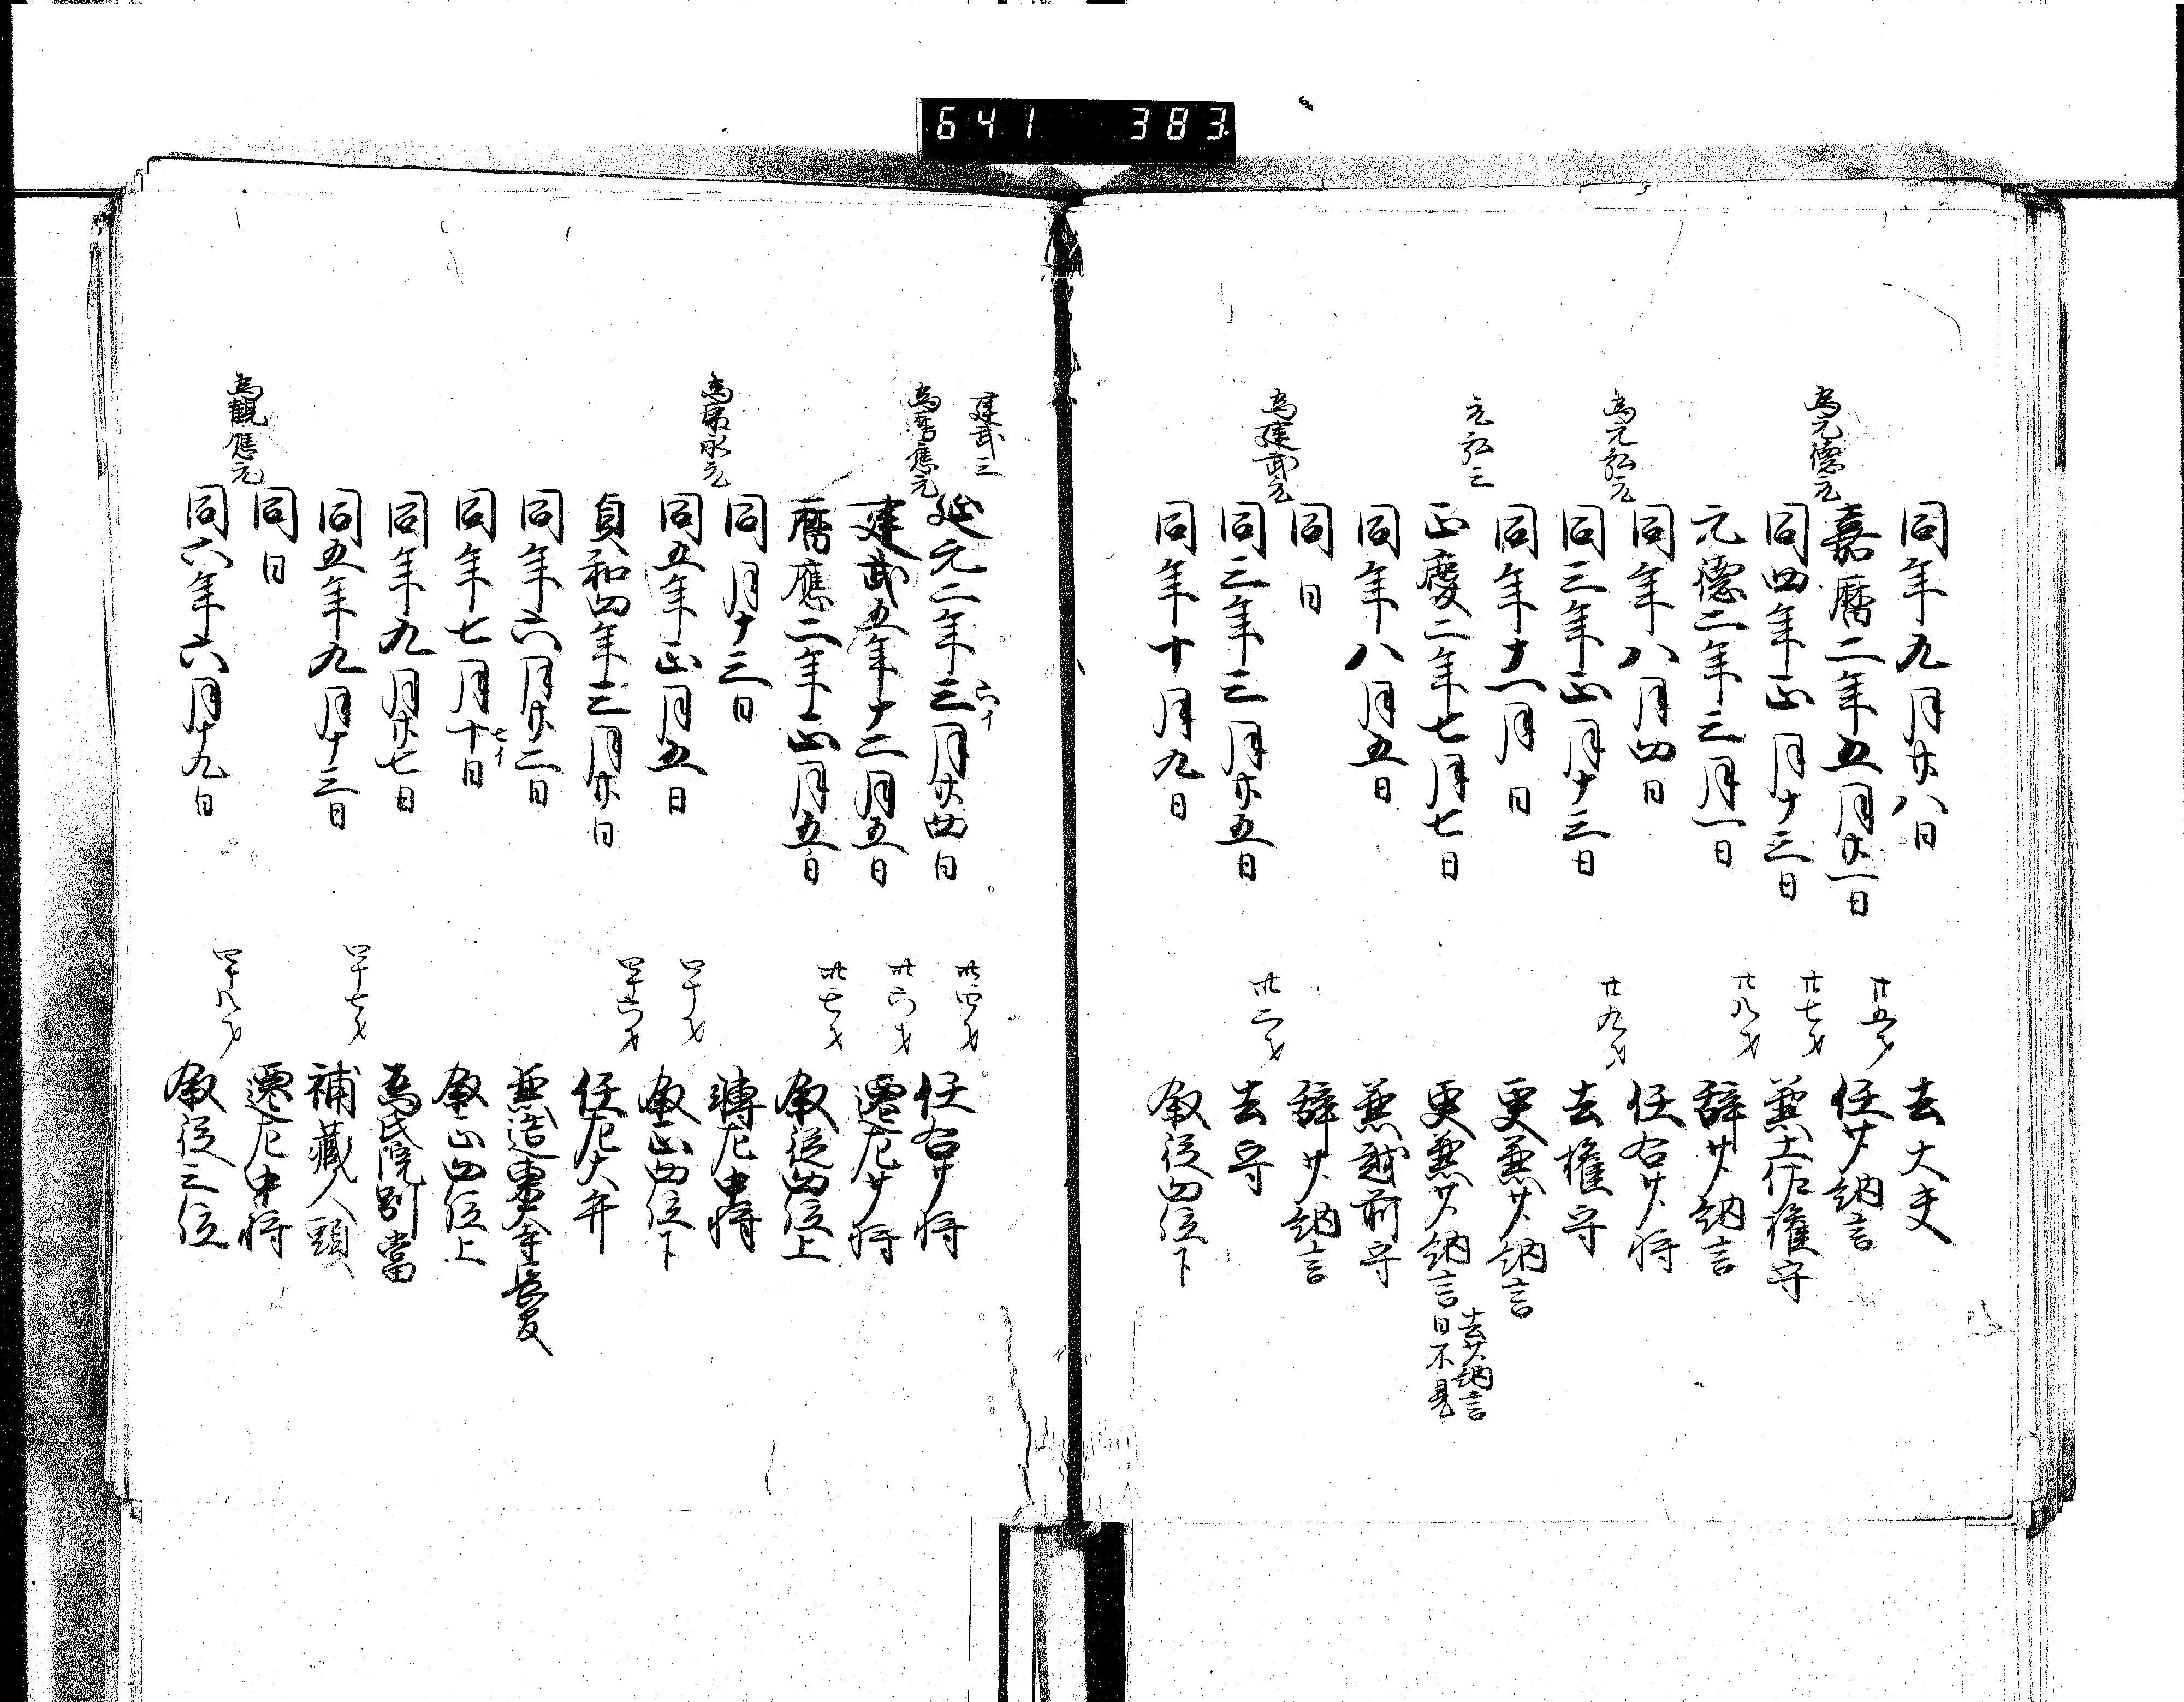 641 383
同年九月廿八日 去大夫
嘉暦二年五月廿一日 廿五才 任少納言
為元德元
同四年正月十三日 廿七才 兼土佐權守
元德二年三月一日 廿八才 辞少納言
同年八月四日 任右少将
為元弘元
同三年正月十三日 廿九才 去權守
同年十一月日 更兼少納言
元弘三
正慶二年七月七日 更兼少納言 去少納言日不見
同年八月五日 兼越前守
同日 辞少納言
為建武元
同三年三月廿五日 卅二才 去守
同年十月九日 叙従四位下
建武三
延元二年三六イ月廿四日 卅四才 任右少将
為暦應元
建武五年十二月五日 卅六才 遷左少将
暦應二年正月五日 卅七才 叙従四位上
同月十三日 轉左中将
為康永元
同五年正月五日 四十才 叙正四位下
貞和四年三月廿日 四十六才 任左大弁
同年六月廿二日 兼造東大寺長官
同年七月十七イ日 叙正四位上
同年九月廿七日 為氏院別當
同五年九月十三日 四十七才 補藏人頭
同日 遷左中将
為觀應元
同六年六月十九日 四十八才 叙従三位